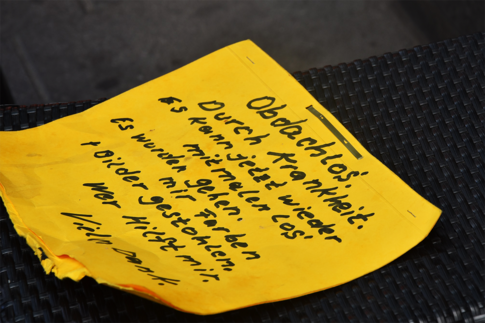 Obdachlos.
Durch Krankheit.
Es kann jetzt wieder
mit malen los.
gehen.
Es wurden
mir Farben
+ Bilder gestohlen.
Wer Hilft mir.
Vieln Dank.